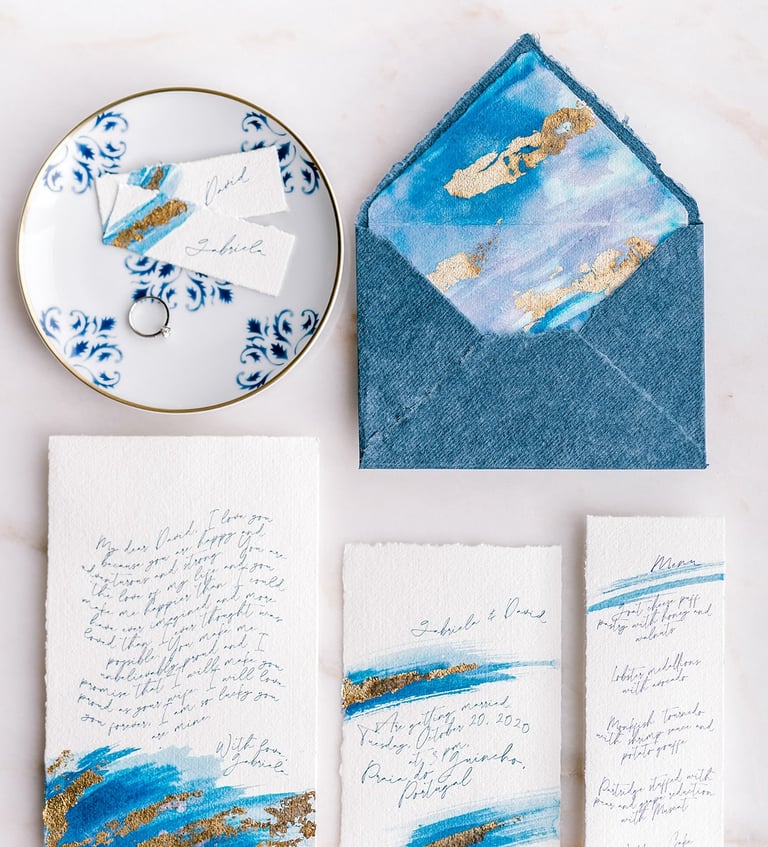 David
Gabriela
My dear David, I love you
because you are happy and
adventurous and strong. You are
the love of my life and you
make me happier than I could
have ever imagined and more
loved than I ever thought was
possible. You make me
unbelievably proud and I
promise that I will make you
proud as your wife. I will love
you forever. I am so lucky you
are mine.
With love,
Gabriela
Gabriela & David
Are getting married
Tuesday, October 20, 2020
at 5 pm.
Praia do Guincho,
Portugal
Menu
Goat cheese puff
pastry with honey and
walnuts
Lobster medallions
with avocado
Monkfish tornado
with shrimp sauce and
potato
Partridge stuffed with
pear and grape reduction
with Muscat